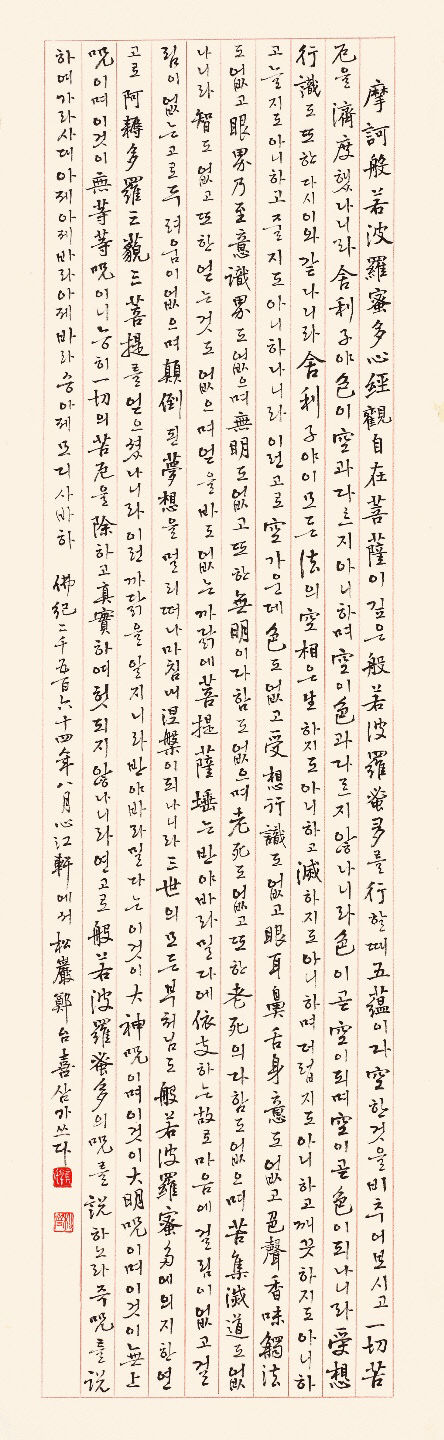 摩訶般若波羅蜜多心經觀自在菩薩이깊은般若波羅蜜多를行할때五蘊이다空한것을비추어보시고一切苦
厄을濟度했나니라舍利子야色이空과다르지아니하며空이色과다르지않나니라色이곧空이되며空이곧色이되나니라受想
行識도또한다시이와같나니라舍利子야이모든法의空相은生하지도아니하고滅하지도아니하며더럽지도아니하고깨끗하지도아니하
고늘지도아니하고줄지도아니하나니라이런고로空가운데色도없고受想行識도없고眼耳鼻舌身意도없고色聲香味觸法
도없고眼界乃至意識界도없으며無明도없고또한無明이다함도없으며老死도없고또한老死의다함도없으며苦集滅道도없
나니라智도없고또한얻는것도없으며얻을바도없는까닭에菩提薩埵는반야바라밀다에依支하는故로마음에걸림이없고걸
림이없는고로두려움이없으며顚倒된夢想을멀리떠나마침내涅槃이되나니라三世의모든부처님도般若波羅蜜多에의지한연
고로阿耨多羅三藐三菩提를얻으셨나니라이런까닭을알지니라반야바라밀다는이것이大神呪이며이것이大明呪이며이것이無上
呪이며이것이無等等呪이니능히一切의苦厄을除하고眞實하여헛되지않나니라연고로般若波羅蜜多의呪를說하노라즉呪를說
하여가라사대아제아제바라아제바라승아제모디사바하 佛紀二千五百六十四年八月心江軒에서松巖鄭台喜삼가쓰다